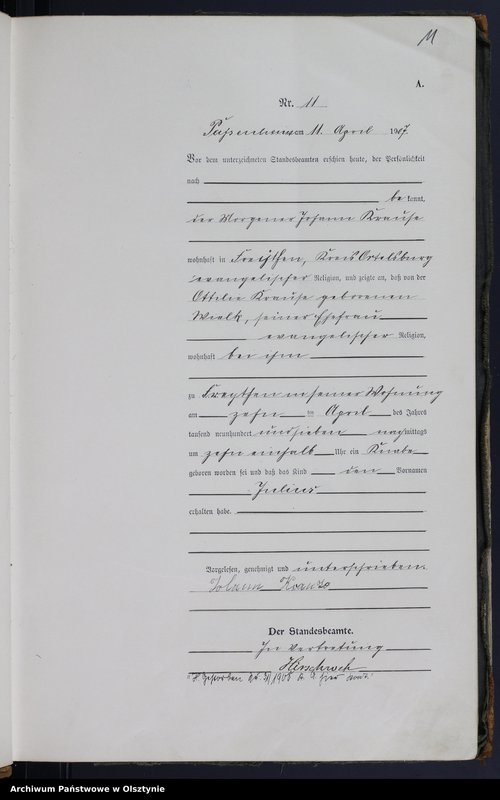 11
A.
Nr. 11
Passenheim am 11. April 1907.
Vor dem unterzeichneten Standesbeamten erschien heute, der Persönlichkeit
nach
bekannt,
der Johann Krause
wohnhaft in Freythen, Kreis Ortelsburg
evangelischer Religion, und zeigte an, daß von der
Ottilie Krause geborenen
seiner Ehefrau
evangelischer Religion,
wohnhaft bei ihm
zu Freythen in seiner Wohnung
am zehn ten April des Jahres
tausend neunhundert und sieben nachmittags
um zehn einhalb Uhr ein Knabe
geboren worden sei und daß das Kind den Vornamen
Julius
erhalten habe.
Vorgelesen, genehmigt und unterschrieben.
Johann
Der Standesbeamte.
In Vertretung
Gestorben
Archiwum Państwowe w Olsztynie